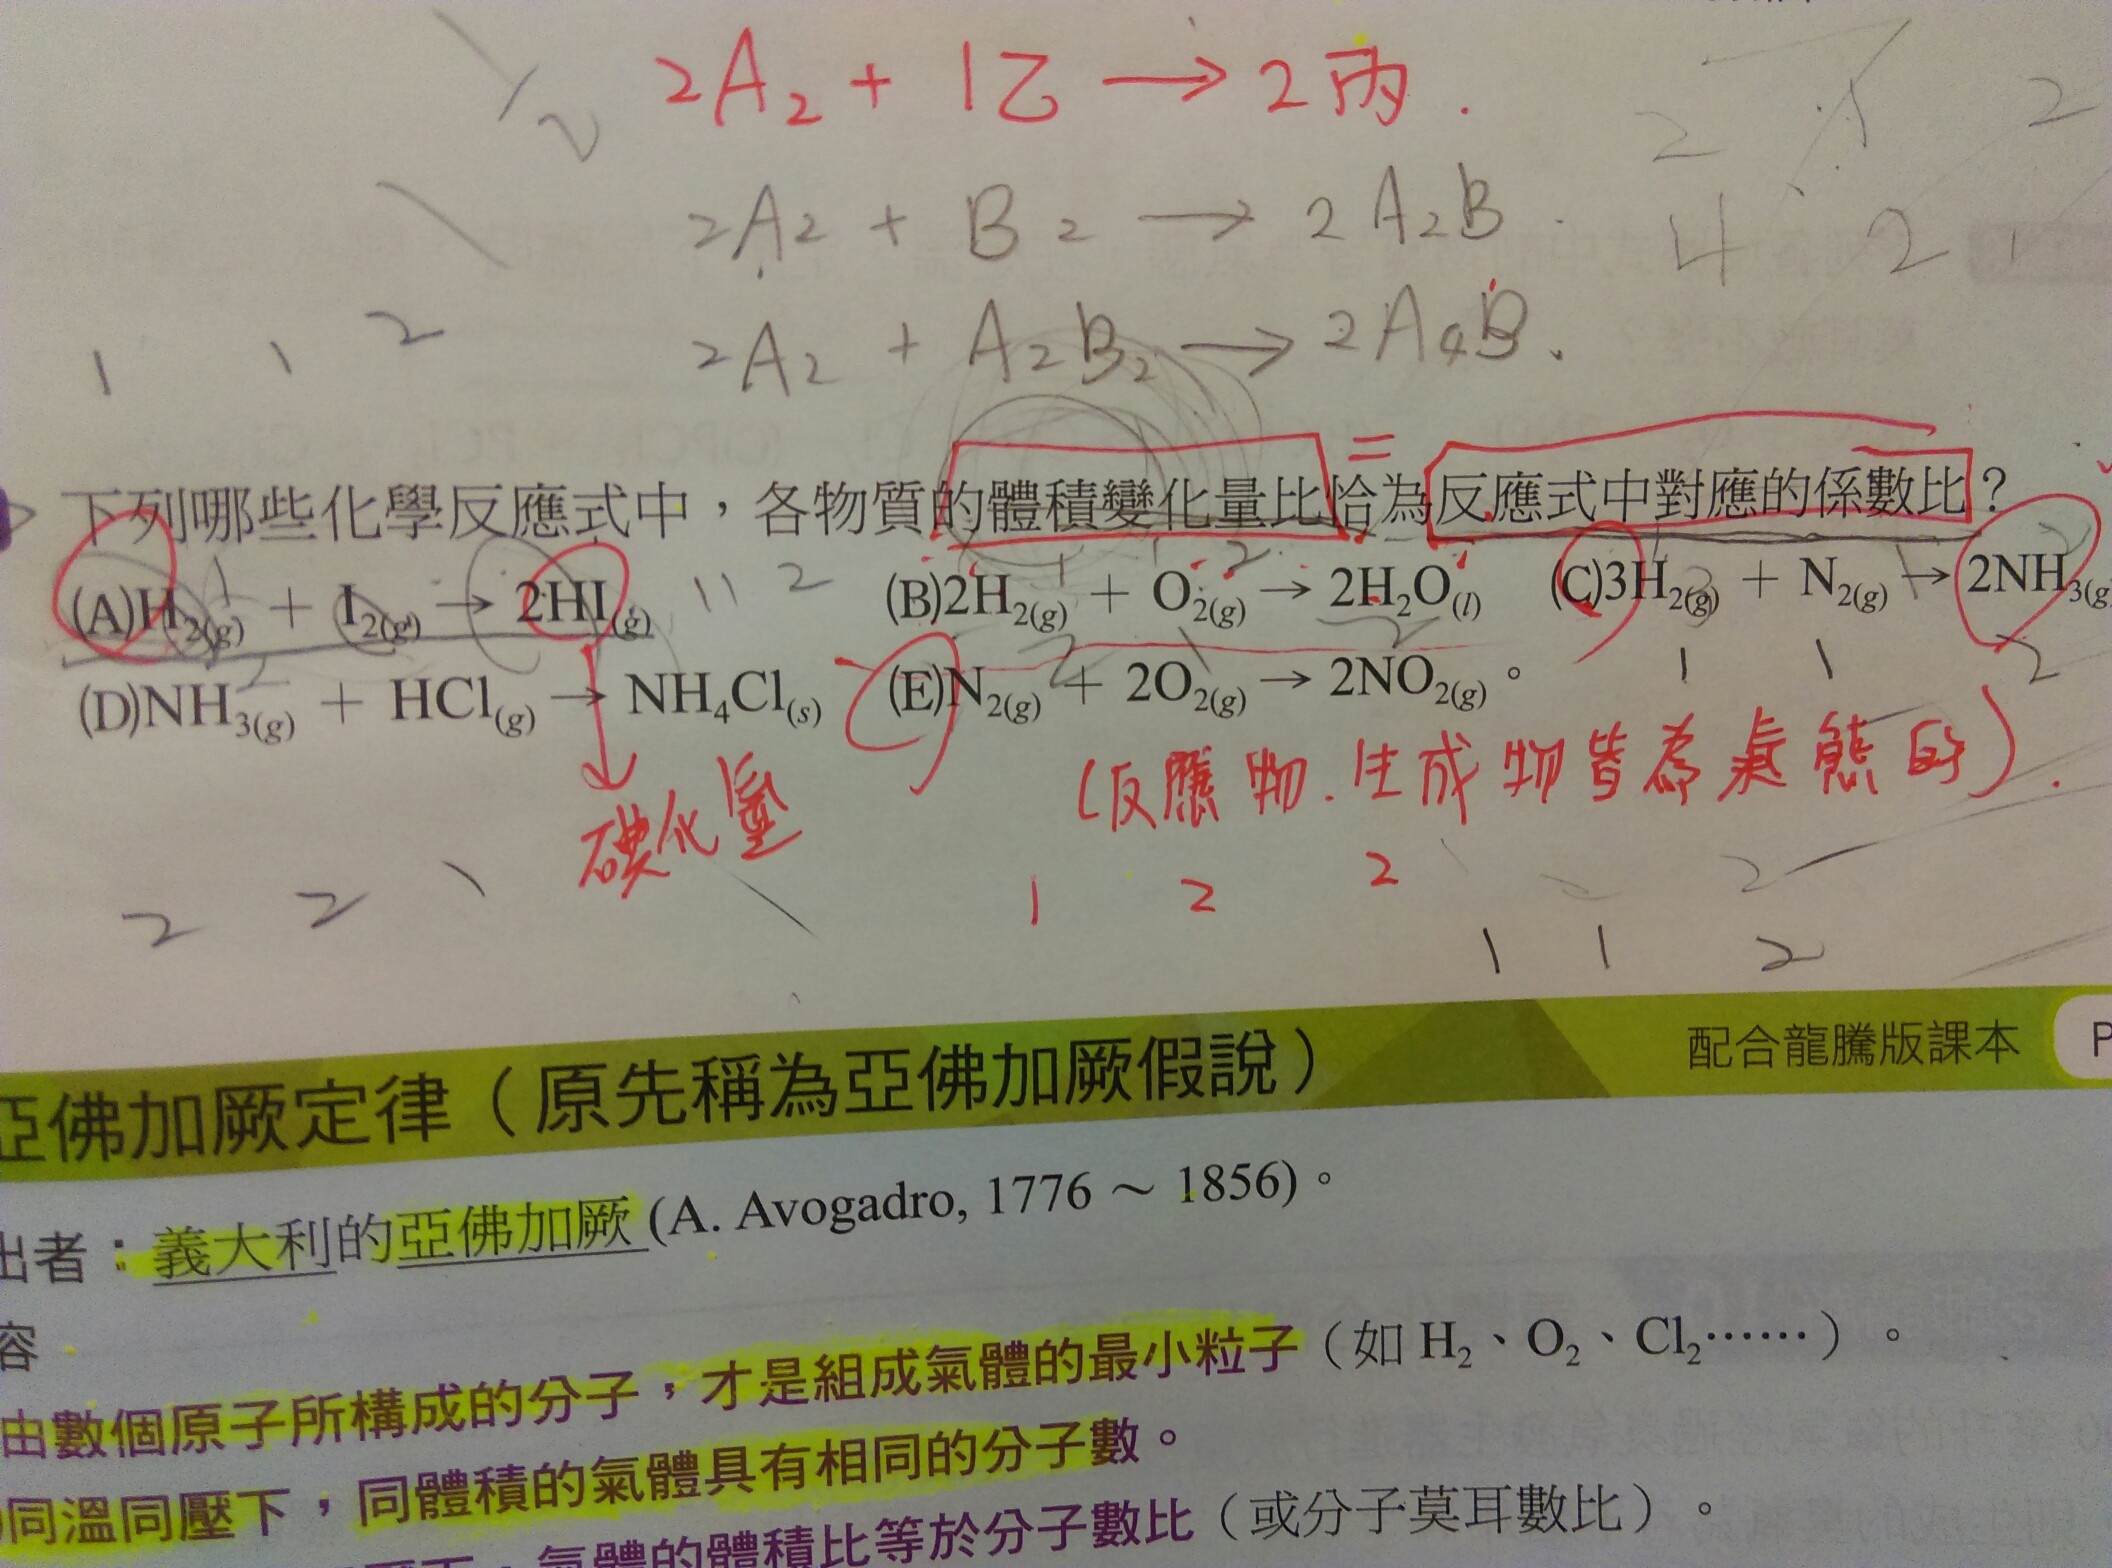 2A₂ + 1乙 → 2丙.
2A₂ + B₂ → 2A₂B
2A₂ + A₂B₂ → 2A₄B.
1 1 2
=
下列哪些化學反應式中，各物質的體積變化量比恰為反應式中對應的係數比？
(A)H₂(g) + I₂(g) → 2HI(g) (B)2H₂(g) + O₂(g) → 2H₂O(l) (C)3H₂(g) + N₂(g) → 2NH₃(g
(D)NH₃(g) + HCl(g) → NH₄Cl(s) (E)N₂(g) + 2O₂(g) → 2NO₂(g)。
1 1 2
碘化氫
(反應物.生成物皆為氣態的).
2 2 1
1 2 2
1 1 2
亞佛加厥定律（原先稱為亞佛加厥假說） 配合龍騰版課本 P
出者：義大利的亞佛加厥 (A. Avogadro, 1776 ～ 1856)。
容
由數個原子所構成的分子，才是組成氣體的最小粒子（如 H₂、O₂、Cl₂⋯⋯）。
同溫同壓下，同體積的氣體具有相同的分子數。
氣體的體積比等於分子數比（或分子莫耳數比）。